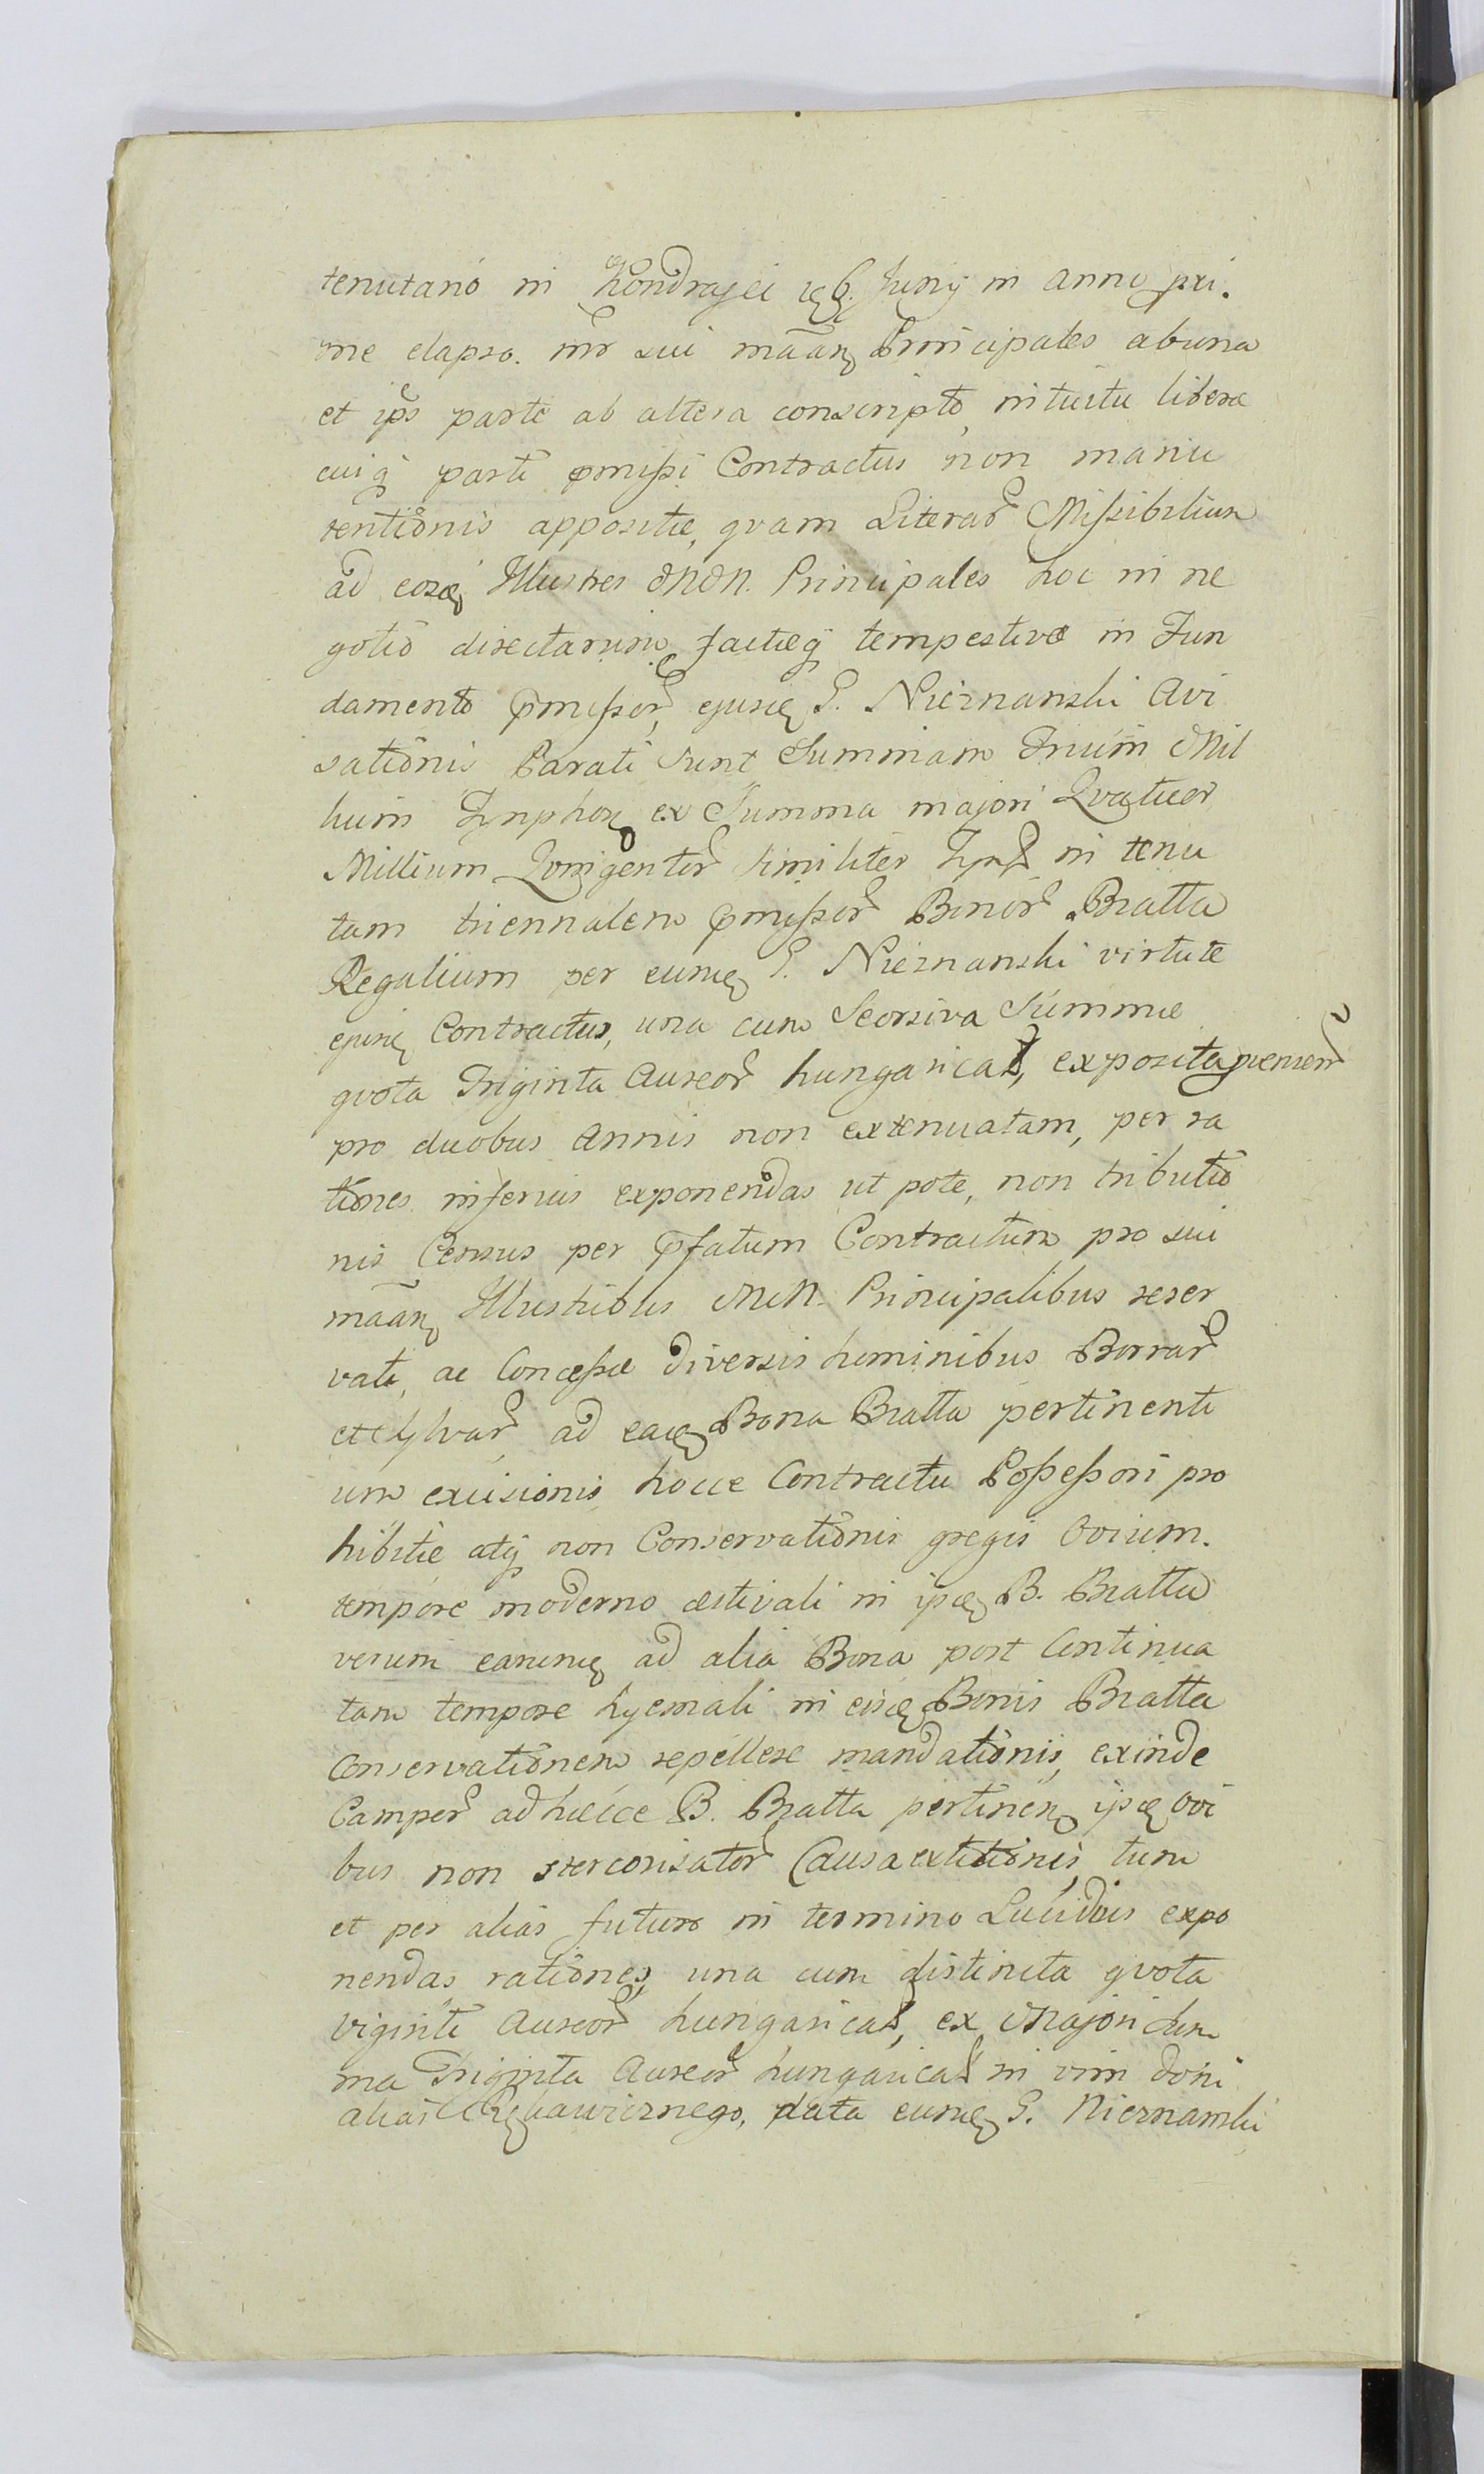 tenutario in Kondrajec 6. Junij in anno pri.
me elapso. inr sui mãanq Principales ab una
et ips parte ab altera conscripto, intuitu liberæ
cuiq parti pmißi Contractus non manu
tentionis appositæ, qvam Literar Mißibilium
ad eosq Illustres MM. Principales hoc in ne
gotio directarum, factæq tempestivæ in Fun
damento pmißor, ejusq G. Nieznanski Avi
sationis Parati sunt Summam Trium Mil
lium Tynphor ex Summa majori Qvatuor
Millium Qvingentor similiter Tynf in tenu
tam triennalem pmißor Bonor Bratta
Regalium per eumq G. Nieznanski virtute
ejusq Contractus, una cum Seorsiva Summæ
qvota Triginta Aureor hungarical, exposita
pro duobus Annis non extenuatam, per ra
tiones inferius exponendas ut pote, non tributio
nis Census per pfatum Contractum pro sui
mãanq Illustribus MM. Principalibus reser
vati, ac Conceßæ diversis hominibus Borrar
et Sylvar ad eaq Bona Bratta pertinenti
um excisionis, hocce Contractu Poßeßori pro
hibitæ atq non Conservationis gregis Ovium.
tempore moderno æstivali in ipsq B. Bratta
verum earumq ad alia Bona post Continua
tam tempore hyemali in eisq Bonis Bratta
Conservationem repellere mandationis, exinde
Campor ad hæcce B. Bratta pertinenq ipsq ovi
bus non stercorisator Causa extitionis, tum
et per alias futuro in termino Lucidius expo
nendas rationes, una cum distincta qvota
viginti Aureor hungarical, ex Majori Sum
ma Triginta Aureor hungarical in vim doni
alias Rękawicznego, data eumq G. Nieznanski